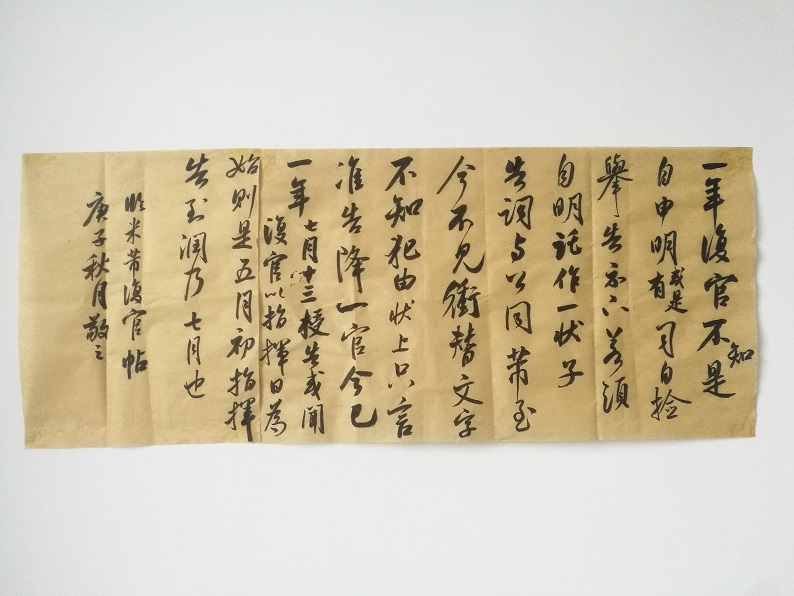 一年復官不知是
自申明或是有司自檢
舉告示下若須
自明託作一状子
告詞与公同芾至
今不見衝替文字
不知犯由状上只言
准告降一官今已
一年七月十三授告或聞
復官以指揮日為
始則是五月初指揮
告至潤乃七月也
臨米芾復官帖
庚子秋月敬之